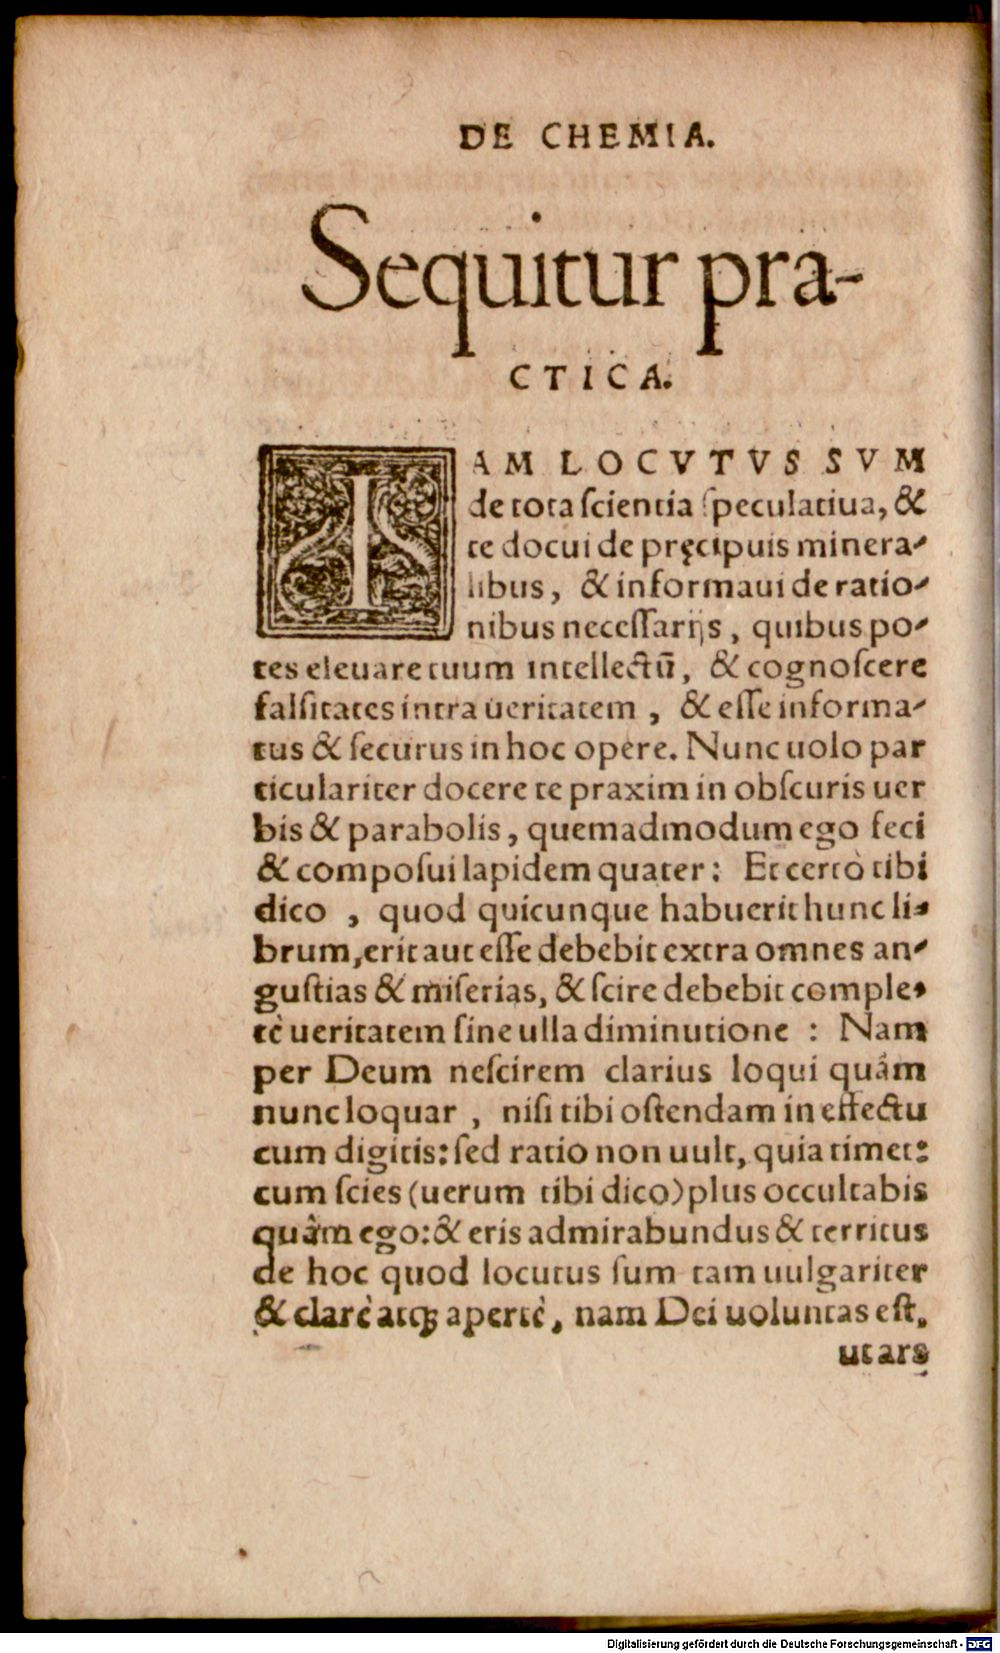 DE CHEMIA.
Sequitur pra-
CTICA.
IAM LOCVTVS SVM
de tota ſcientia ſpeculatiua, &
te docui de pręcipuis minera-
libus, & informaui de ratio-
nibus neceſſarijs, quibus po-
tes eleuare tuum intellectū, & cognoſcere
falſitates intra ueritatem, & eſſe informa-
tus & ſecurus in hoc opere. Nunc uolo par
ticulariter docere te praxim in obſcuris uer
bis & parabolis, quemadmodum ego feci
& compoſui lapidem quater: Et certò tibi
dico, quod quicunque habuerit hunc li-
brum, erit aut eſſe debebit extra omnes an-
guſtias & miſerias, & ſcire debebit comple-
tè ueritatem ſine ulla diminutione : Nam
per Deum neſcirem clarius loqui quàm
nunc loquar, niſi tibi oſtendam in effectu
cum digitis: ſed ratio non uult, quia timet:
cum ſcies (uerum tibi dico) plus occultabis
quàm ego: & eris admirabundus & territus
de hoc quod locutus ſum tam uulgariter
& clarè atq; apertè, nam Dei uoluntas eſt,
ut ars
Digitalisierung gefördert durch die Deutsche Forschungsgemeinschaft - DFG